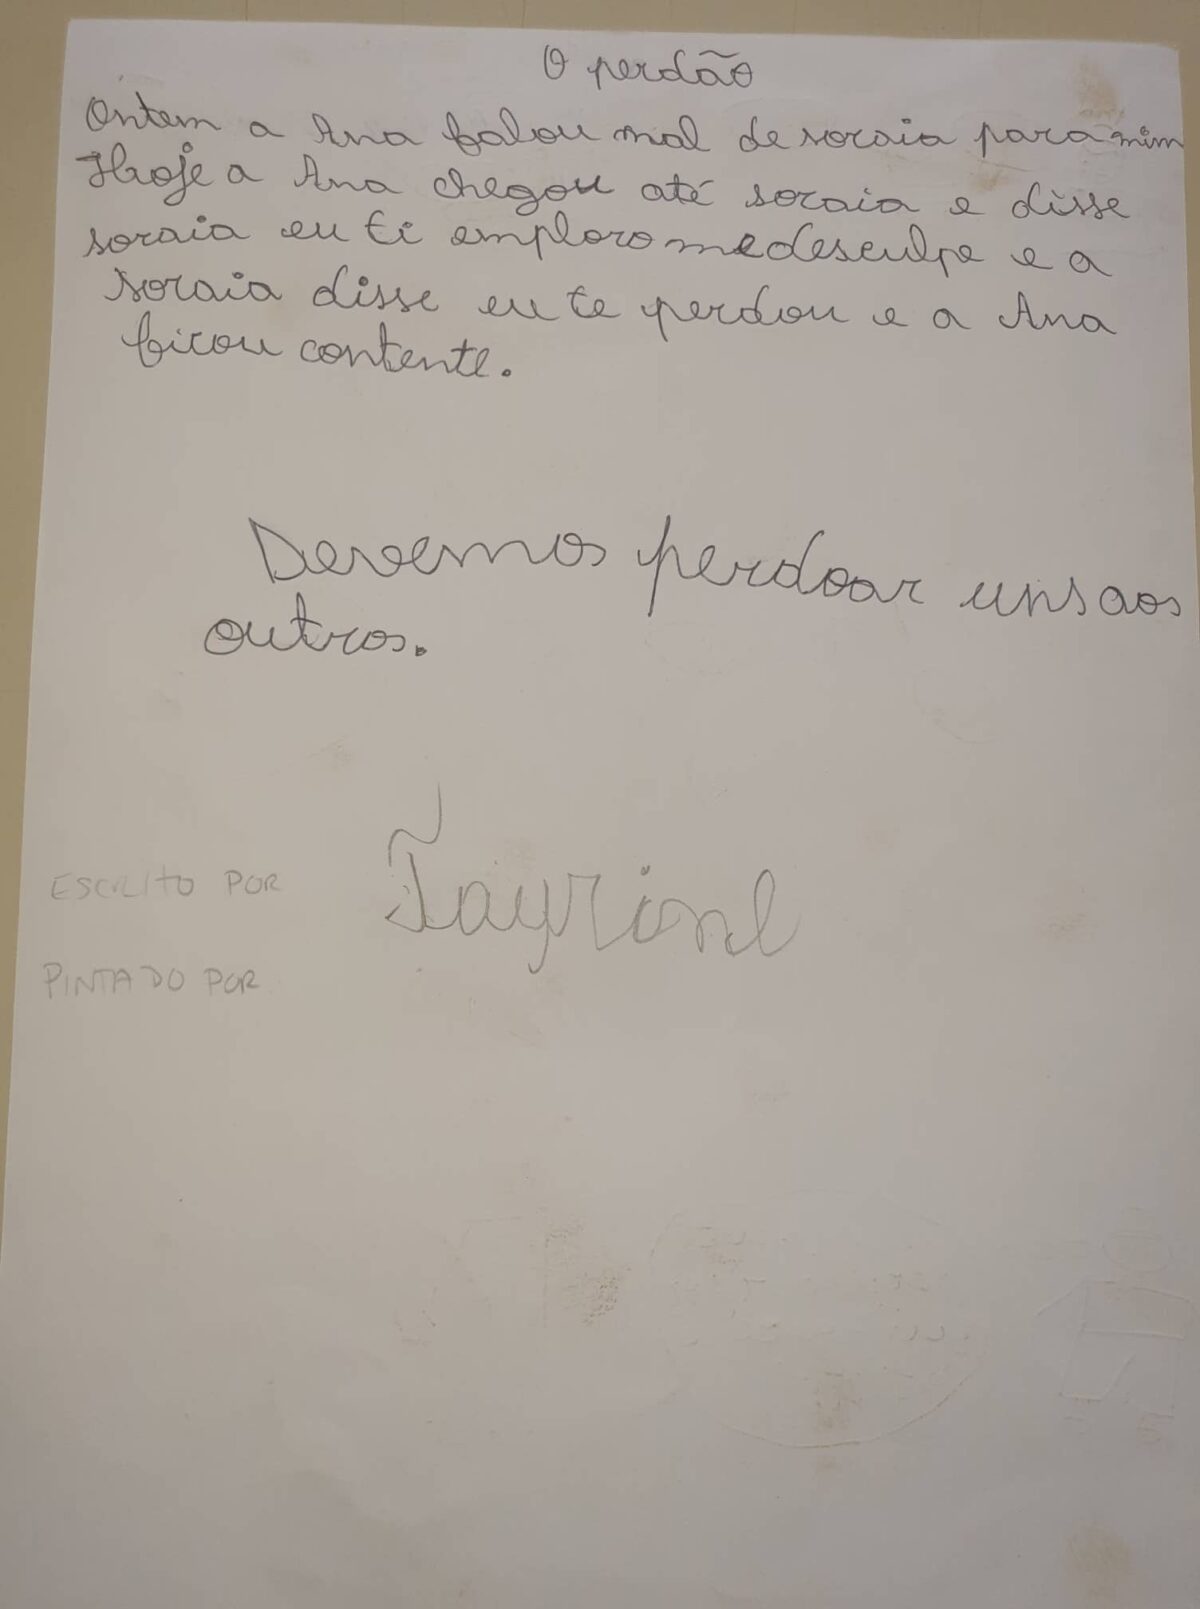 O perdão
Ontem a Ana falou mal de soraia para mim
Hoje a Ana chegou até soraia e disse
soraia eu ti emploro me desculpe e a
soraia disse eu te perdou e a Ana
ficou contente.
Devemos perdoar uns aos
outros.
ESCRITO POR Tayrine
PINTADO POR